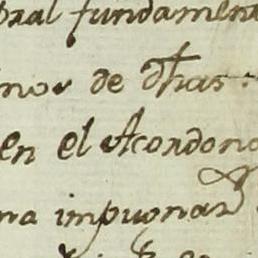 oral fundament
nos de dhas
en el Acordono
na impugnar